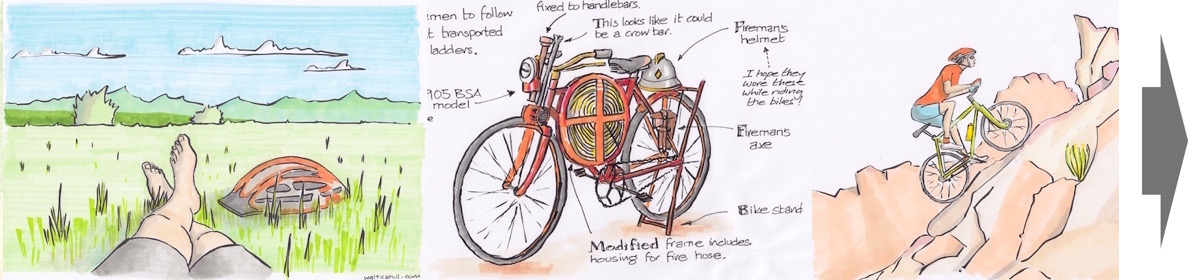 waltcahill.com
emen to follow
t transported
ladders.
fixed to handlebars.
This looks like it could
be a crow bar.
Fireman's
helmet
I hope they
wore these
while riding
the bikes!
1905 BSA
model
e
Fireman's
axe
Bike stand
Modified frame includes
housing for fire hose.